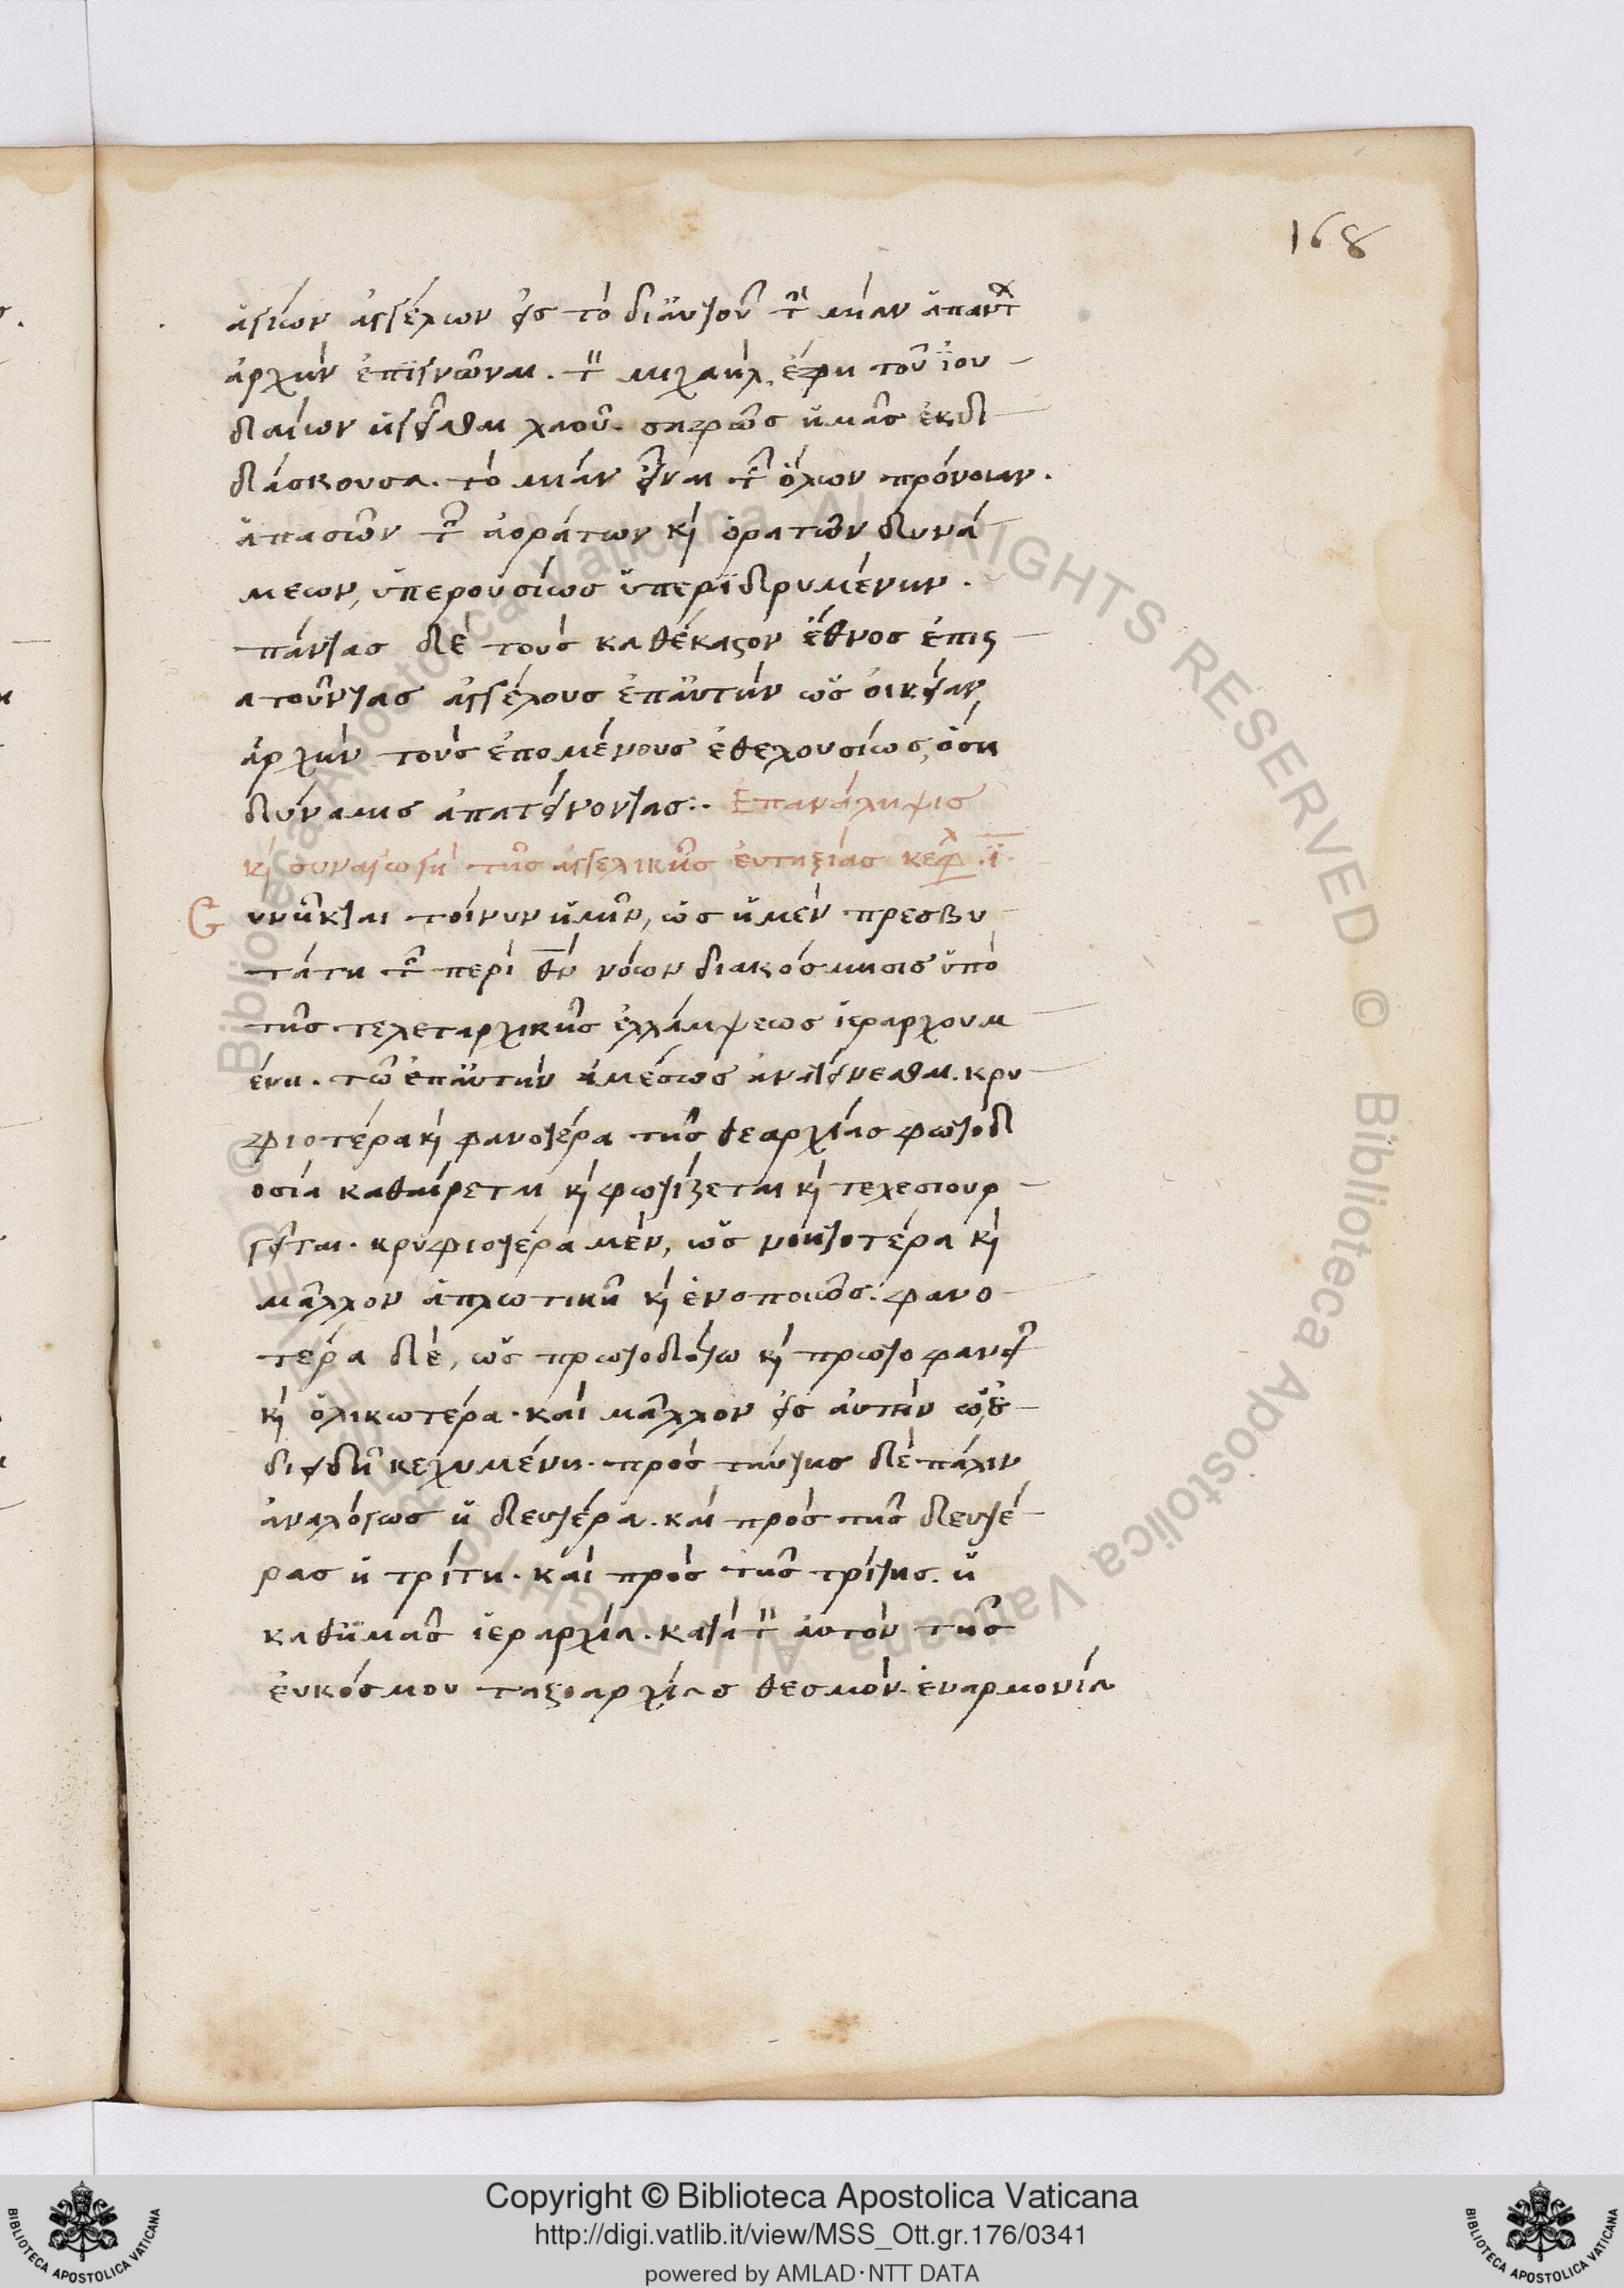 168
ἁγίων ἀγγέλων εἰς τὸ δι' αὐτοῦ τὴν μίαν ἁπάντων
ἀρχὴν ἐπιγνῶναι. τὸν μιχαὴλ ἔφη τοῦ ἰου
δαίων ἡγεῖσθαι λαοῦ. σαφῶς ἡμᾶς ἐκδι
δάσκουσα. τὸ μίαν εἶναι τῶν ὅλων πρόνοιαν.
ἁπασῶν τῶν ἀοράτων καὶ ὁρατῶν δυνά
μεων, ὑπερουσίως ὑπεριδρυμένην.
πάντας δὲ τοὺς καθέκαστον ἔθνος ἐπιστ
ατοῦντας ἀγγέλους ἐπ' αὐτὴν ὡς οἰκείαν
ἀρχὴν τοὺς ἑπομένους ἐθελουσίως, ὅση
δύναμις ἀπατείνοντας:. Ἐπανάληψις
καὶ συναγωγὴ τῆς ἀγγελικῆς εὐταξίας κεφλ. ϊ.
Συνῆκται τοίνυν ἡμῖν, ὡς ἡ μὲν πρεσβυ
τάτη τῶν περὶ θν νόων διακόσμησις ὑπὸ
τῆς τελεταρχικῆς ἐλλάμψεως ἱεραρχουμ
ένη. τῶ ἐπ' αὐτὴν ἀμέσως ἀνατείνεσθαι. κρυ
φιοτέρα καὶ φανοτέρα τῆς θεαρχίας φωτοδ
οσία καθαίρεται καὶ φωτίζεται καὶ τελεσιουρ
γεῖται. κρυφιοτέρα μὲν, ὡς νοητοτέρα καὶ
μᾶλλον ἁπλωτικῆ καὶ ἑνοποιῶς. φανο
τέρα δὲ, ὡς πρωτοδότω καὶ πρωτοφανεῖ
καὶ ὁλικωτέρα. καὶ μᾶλλον εἰς αὐτὴν ὡς
διειδῆ κεχυμένη. πρὸς ταύτης δὲ πάλιν
ἀναλόγως ἡ δευτέρα. καὶ πρὸς τῆς δευτέ
ρας ἡ τρίτη. καὶ πρὸς τῆς τρίτης. ἡ
καθ' ἡμᾶς ἱεραρχία. κατὰ τὸν αὐτὸν τῆς
εὐκόσμου ταξιαρχίας θεσμὸν. ἐναρμονία
Copyright © Biblioteca Apostolica Vaticana
http://digi.vatlib.it/view/MSS_Ott.gr.176/0341
powered by AMLAD·NTT DATA